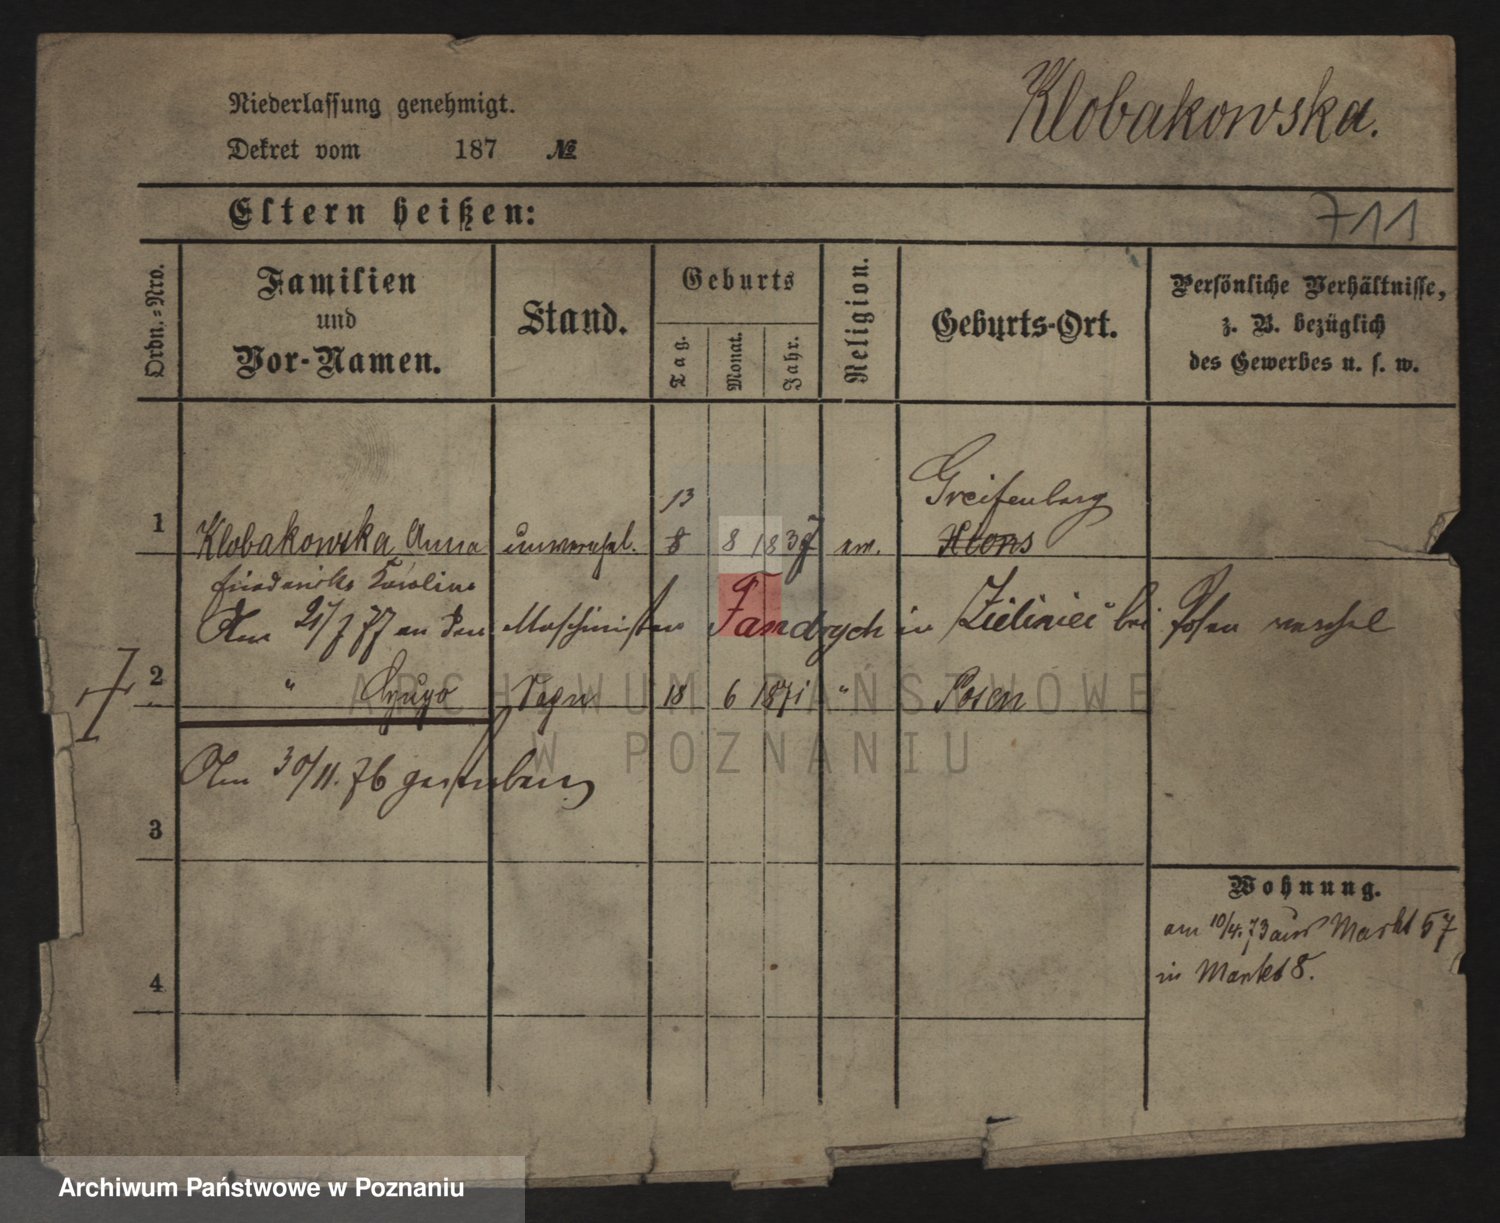 Niederlassung genehmigt.
Dekret vom 187 №
Klobakowska.
Eltern heißen:
711
Ordn.-Nro.
Familien
und
Vor-Namen.
Stand.
Geburts
Tag.
Monat.
Jahr.
Religion.
Geburts-Ort.
Persönliche Verhältnisse,
z. B. bezüglich
des Gewerbes u. s. w.
13 Greifenberg
1 Klobakowska Anna unverehel. 8 8 1837 ev. Xions
Friedericke Karoline
Am 21/7 77 an den Maschinisten Fandrych in Zieliniec bei Posen verehel
2 " Hugo Sohn 18 6 1871 " Posen
Am 30/11. 76 gestorben
3
4
Wohnung.
am 10/4. 73 aus Markt 57
in Markt 8.
ARCHIWUM PAŃSTWOWE
W POZNANIU
Archiwum Państwowe w Poznaniu